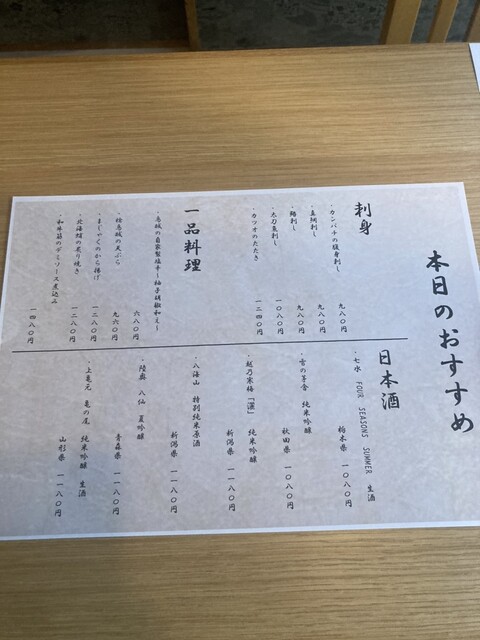 本日のおすすめ
刺身
・カンパチの腹身刺し
九八〇円
・真鯛刺し
九八〇円
・鯵刺し
九八〇円
・太刀魚刺し
一〇八〇円
・カツオのたたき
一二四〇円
一品料理
自家製塩辛～柚子胡椒和え～
六八〇円
の天ぷら
九六〇円
・まじゃくのから揚げ
一二八〇円
・北海鮹の炙り焼き
一二八〇円
・和牛筋のデミソース煮込み
一四八〇円
日本酒
・七水 FOUR SEASONS SUMMER 生酒
栃木県 一〇八〇円
・雪の茅舎 純米吟醸
秋田県 一〇八〇円
・越乃寒梅「灑」 純米吟醸
新潟県 一一八〇円
・八海山 特別純米原酒
新潟県 一一八〇円
・陸奥 八仙 夏吟醸
青森県 一一八〇円
・上亀元 亀の尾 純米吟醸 生酒
山形県 一一八〇円